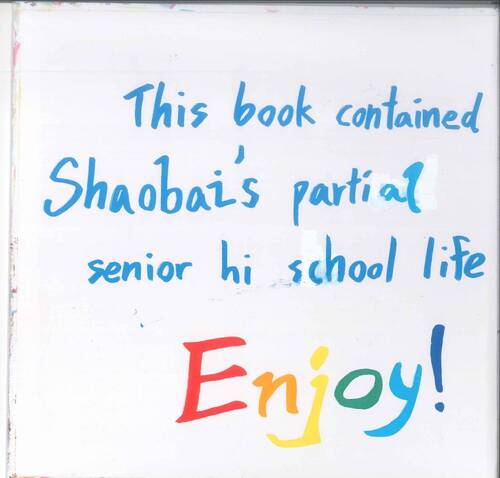 This book contained
Shaobai's partial
senior hi school life
Enjoy!